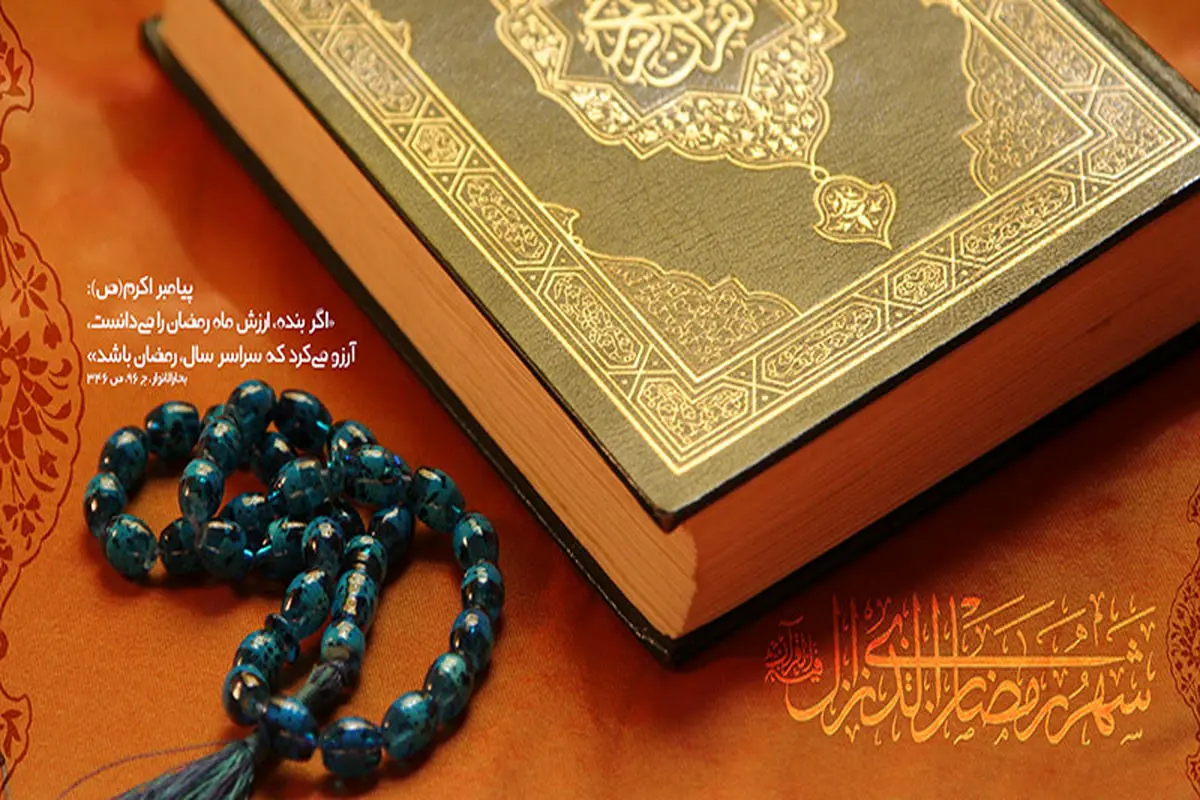 قرآن کریم
پیامبر اکرم(ص):
«اگر بنده، ارزش ماه رمضان را می‌دانست،
آرزو می‌کرد که سراسر سال، رمضان باشد»
بحارالانوار، ج ۹۶، ص ۳۴۶
شَهْرُ رَمَضَانَ الَّذِي أُنْزِلَ فِيهِ الْقُرْآنُ